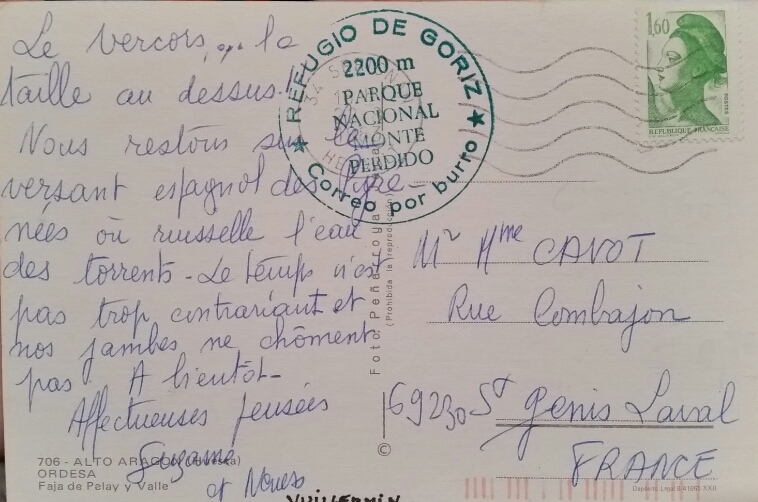 Le Vercors ... la
taille au dessus !
Nous restons sur le
versant espagnol des Pyré-
nées où ruisselle l'eau
des torrents - Le temps n'est
pas trop contrariant et
nos jambes ne chôment
pas. A bientôt -
Affectueuses pensées
et
706 - ALTO ARAGON (Huesca)
ORDESA
Faja de Pelay y Valle
VUILLERMIN
REFUGIO DE GORIZ
2200 m
PARQUE
NACIONAL
MONTE
PERDIDO
Correo por burro
Foto Peñarroya
(Prohibida la reproducción)
©
1,60
POSTES
REPUBLIQUE FRANÇAISE
Mr Mme CAVOT
Rue Combajon
69230 St Genis Laval
FRANCE